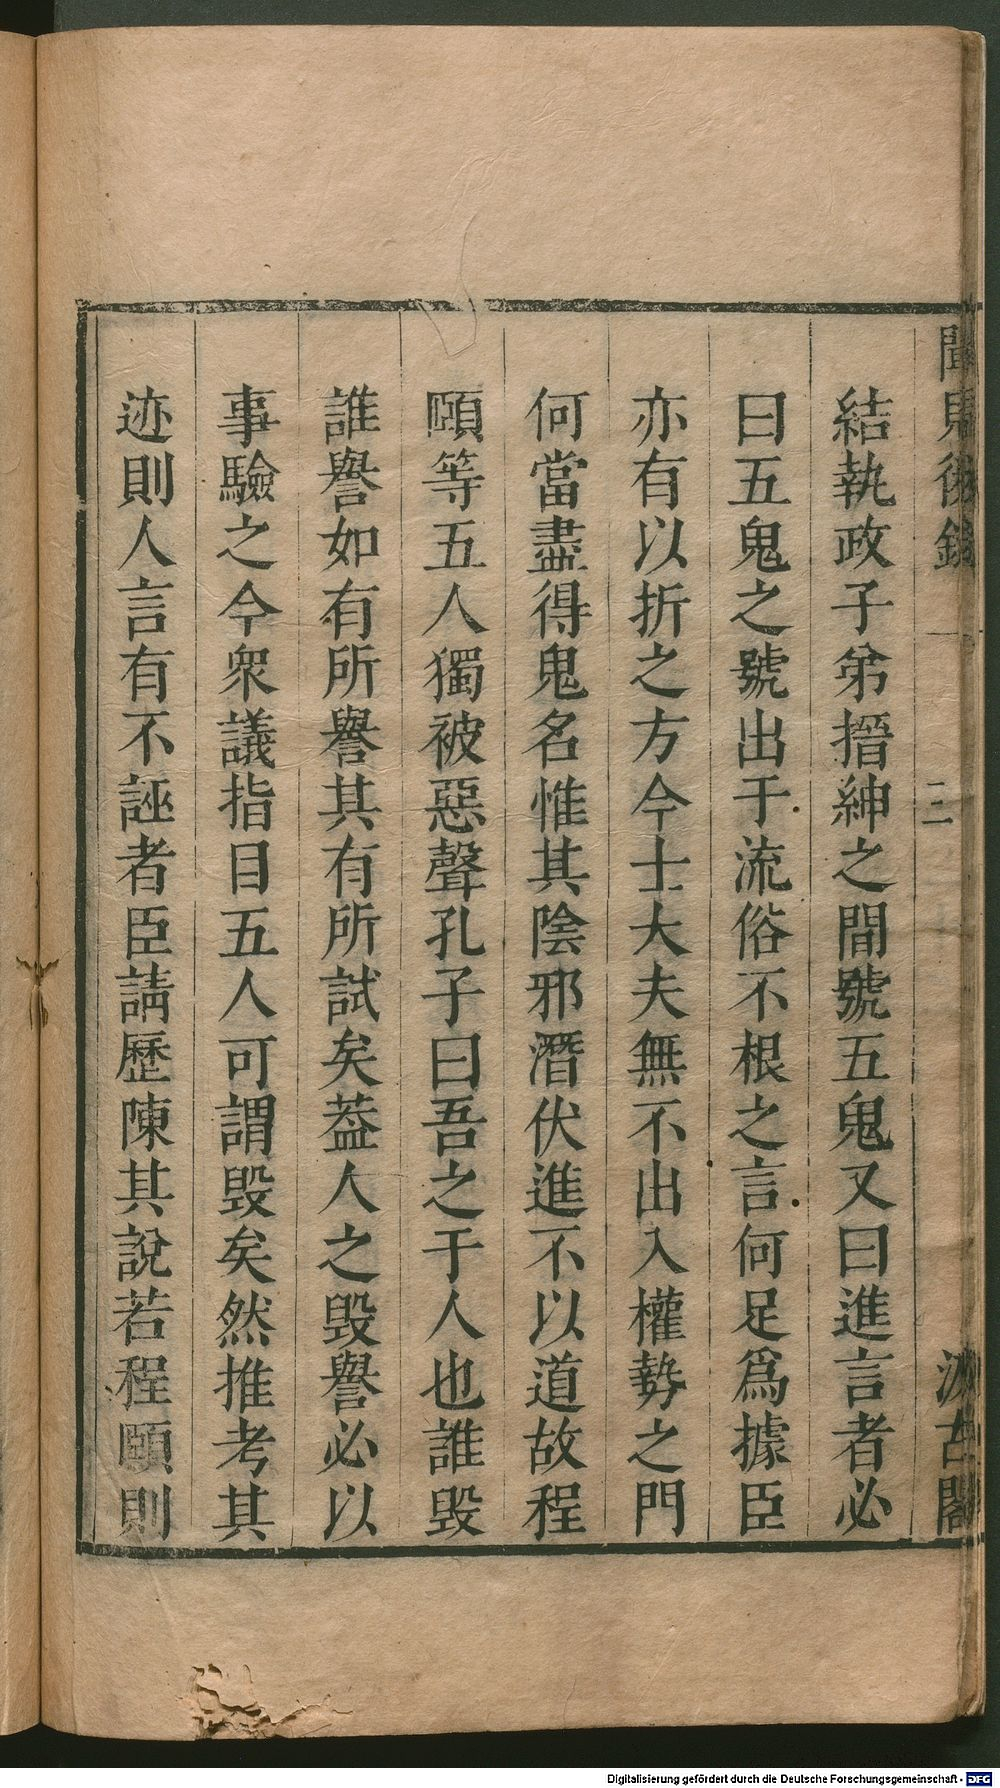 聞見後錄
二
汲古閣
結執政子弟搢紳之間號五鬼又曰進言者必
曰五鬼之號出于流俗不根之言何足爲據臣
亦有以折之方今士大夫無不出入權勢之門
何當盡得鬼名惟其陰邪潛伏進不以道故程
頤等五人獨被惡聲孔子曰吾之于人也誰毀
誰譽如有所譽其有所試矣葢人之毀譽必以
事驗之今衆議指目五人可謂毀矣然推考其
迹則人言有不誣者臣請歷陳其說若程頤則
Digitalisierung gefördert durch die Deutsche Forschungsgemeinschaft - DFG